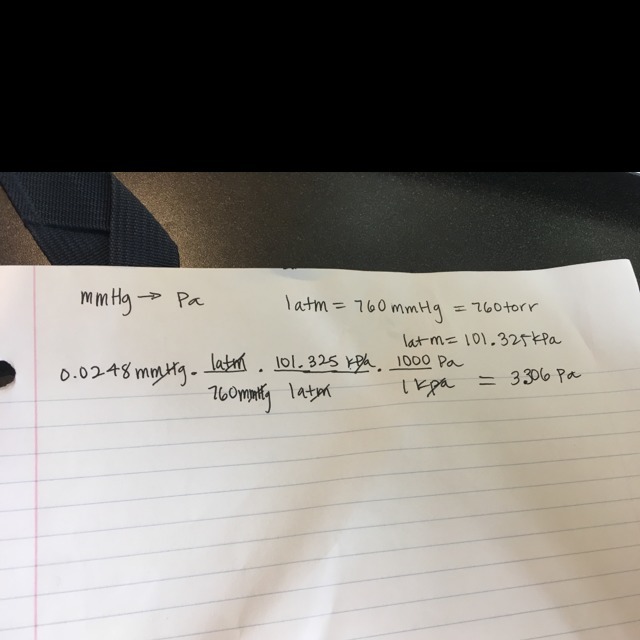 mmHg → Pa 1atm = 760 mmHg = 760torr
1atm = 101.325kPa
0.0248 mmHg · 1atm/760mmHg · 101.325 kPa/1atm · 1000 Pa/1 kPa = 3.306 Pa